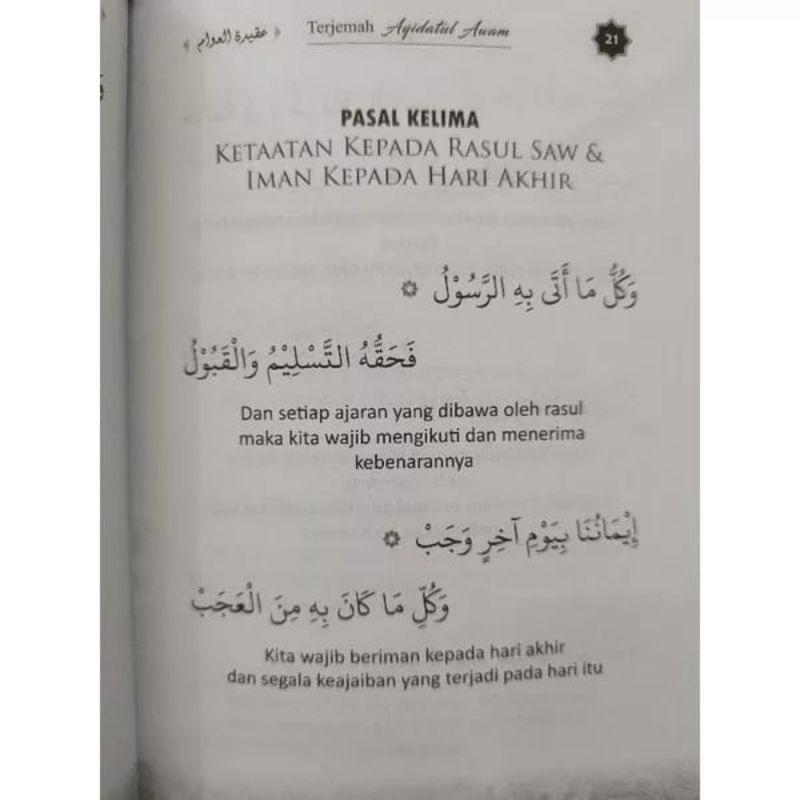 ﴿ عقيدة العوام ﴾ Terjemah Aqidatul Awam 21
PASAL KELIMA
KETAATAN KEPADA RASUL SAW &
IMAN KEPADA HARI AKHIR
وَكُلُّ مَا أَتَى بِهِ الرَّسُوْلُ ۞
فَحَقُّهُ التَّسْلِيْمُ وَالْقَبُوْلُ
Dan setiap ajaran yang dibawa oleh rasul
maka kita wajib mengikuti dan menerima
kebenarannya
إِيْمَانُنَا بِيَوْمِ آخِرٍ وَجَبْ ۞
وَكُلِّ مَا كَانَ بِهِ مِنَ الْعَجَبْ
Kita wajib beriman kepada hari akhir
dan segala keajaiban yang terjadi pada hari itu